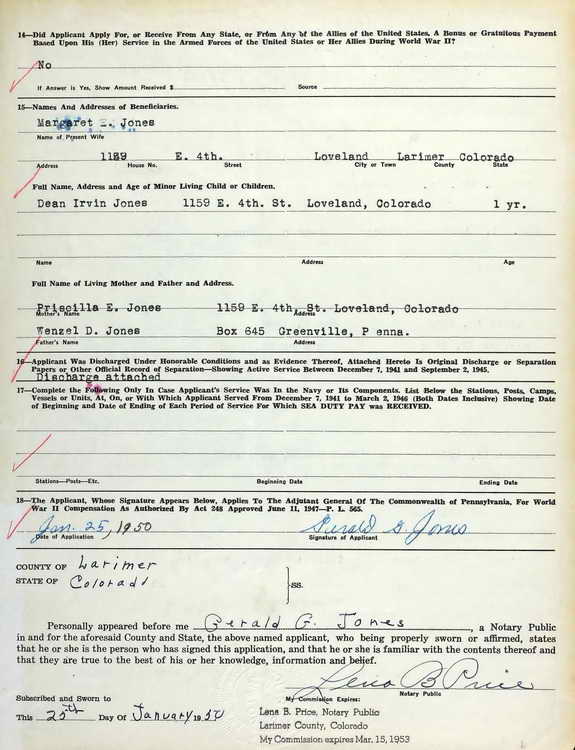 14—Did Applicant Apply For, or Receive From Any State, or From Any of the Allies of the United States, A Bonus or Gratuitous Payment
Based Upon His (Her) Service in the Armed Forces of the United States or Her Allies During World War II?
No
If Answer is Yes, Show Amount Received $ Source
15—Names And Addresses of Beneficiaries.
Margaret E. Jones
Name of Present Wife
E. 4th. Loveland Larimer Colorado
Address House No. Street City or Town County State
Full Name, Address and Age of Minor Living Child or Children.
Dean Irvin Jones 1159 E. 4th. St. Loveland, Colorado 1 yr.
Name Address Age
Full Name of Living Mother and Father and Address.
Priscilla E. Jones 1159 E. 4th, St. Loveland, Colorado
Mother's Name Address
Wenzel D. Jones Box 645 Greenville, P enna.
Father's Name Address
16—Applicant Was Discharged Under Honorable Conditions and as Evidence Thereof, Attached Hereto Is Original Discharge or Separation
Papers or Other Official Record of Separation—Showing Active Service Between December 7, 1941 and September 2, 1945.
Discharge attached
17—Complete the Following Only In Case Applicant's Service Was In the Navy or Its Components. List Below the Stations, Posts, Camps,
Vessels or Units, At, On, or With Which Applicant Served From December 7, 1941 to March 2, 1946 (Both Dates Inclusive) Showing Date
of Beginning and Date of Ending of Each Period of Service For Which SEA DUTY PAY was RECEIVED.
Stations—Posts—Etc. Beginning Date Ending Date
18—The Applicant, Whose Signature Appears Below, Applies To The Adjutant General Of The Commonwealth of Pennsylvania, For World
War II Compensation As Authorized By Act 248 Approved June 11, 1947—P. L. 565.
Jan. 25, 1950 Gerald G. Jones
Date of Application Signature of Applicant
COUNTY OF Larimer
STATE OF Colorado SS.
Personally appeared before me Gerald G. Jones, a Notary Public
in and for the aforesaid County and State, the above named applicant, who being properly sworn or affirmed, states
that he or she is the person who has signed this application, and that he or she is familiar with the contents thereof and
that they are true to the best of his or her knowledge, information and belief.
Lena B Price
Subscribed and Sworn to My Commission Expires: Notary Public
This 25th Day Of January 1950
Lena B. Price, Notary Public
Larimer County, Colorado
My Commission expires Mar. 15, 1953